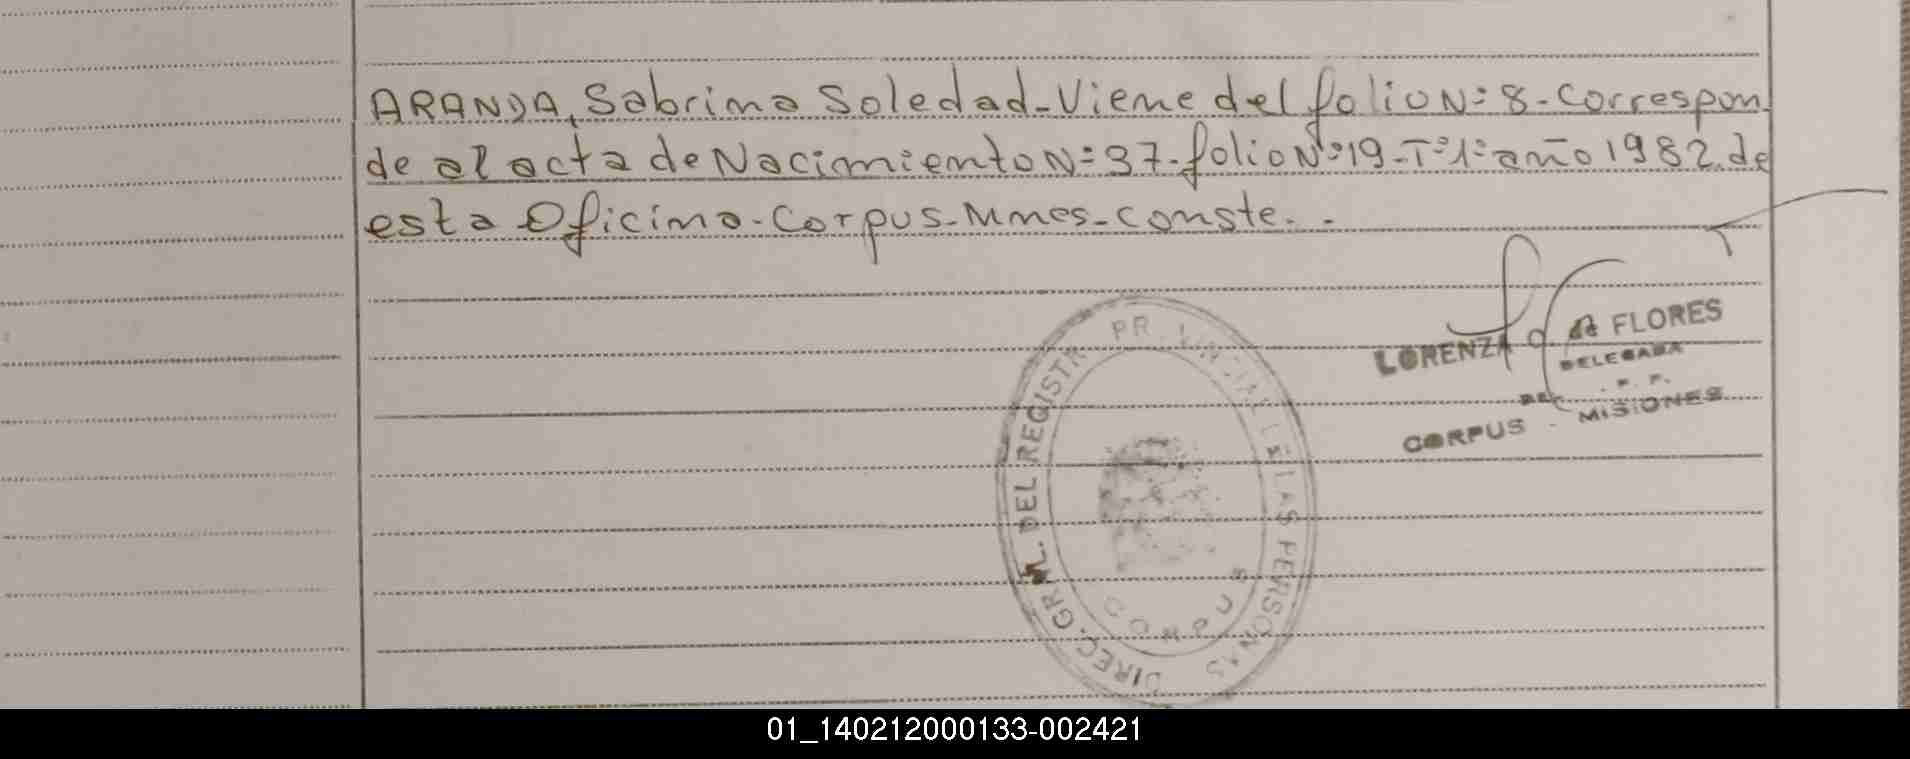 ARANDA, Sabrina Soledad-Viene del folio Nº 8-Correspon-
de al acta de Nacimiento Nº 37-folio Nº 19-Tº 1º año 1982. de
esta Oficina-Corpus-Mnes-Conste..
LORENZA G. de FLORES
DELEGADA
CORPUS - MISIONES
DIREC. GRAL. DEL REGISTRO PROVINCIAL DE LAS PERSONAS
CORPUS
01_140212000133-002421